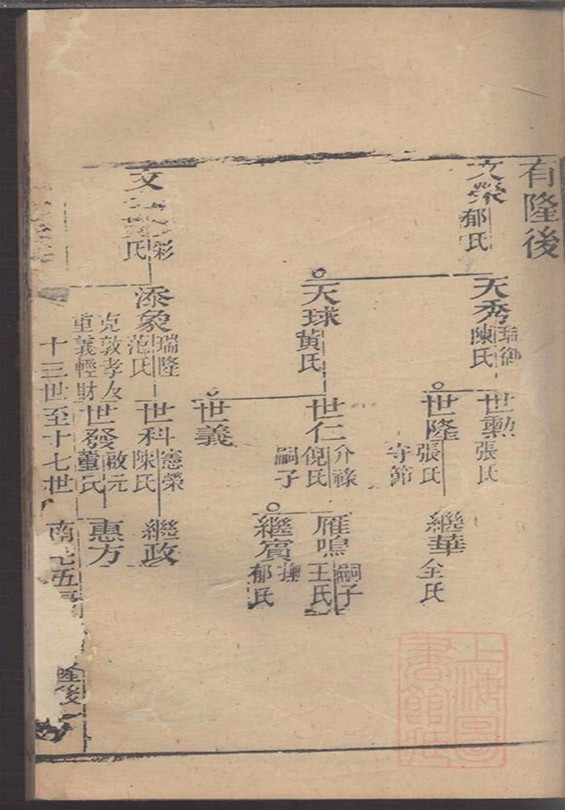 有隆後
文榮 郁氏
天秀 陳氏
世勲 張氏
世隆 張氏 守節
繼華 全氏
天球 黄氏
世仁 介祿 倪氏 嗣子
雁鳴 嗣子 王氏
繼賓 郁氏
世義
文 彩 氏
添象 瑞隆 范氏
世科 憲榮 陳氏
繼政
克敦孝友
重義輕財
世發 啟元 董氏
惠方
十三世至十七世
南七五
隆後
上海圖書館藏